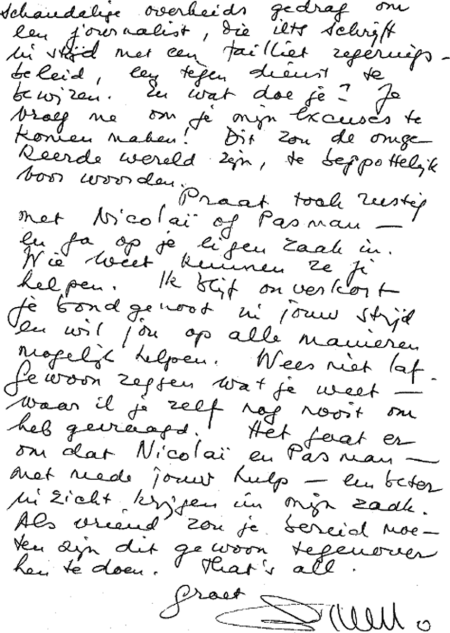 schandalige overheids gedrag om
een journalist, die iets schrijft
in strijd met een failliet regerings-
beleid, een tegen dienst te
bewijzen. En wat doe je? Je
vraag me om je mijn excuses te
komen maken! Dit zou de omge-
keerde wereld zijn, te bespottelijk
voor woorden.
Praat toch rustig
met Nicolaï of Pasman —
en ga op je eigen zaak in.
Wie weet kunnen ze je
helpen. Ik blijf onverkort
je bondgenoot in jouw strijd
en wil jou op alle manieren
mogelijk helpen. Wees niet laf.
Gewoon zeggen wat je weet —
waar ik je zelf nog nooit om
heb gevraagd. Het gaat er
om dat Nicolaï en Pasman —
met mede jouw hulp — een beter
inzicht krijgen in mijn zaak.
Als vriend zou je bereid moe-
ten zijn dit gewoon tegenover
hen te doen. That's all.
Groet